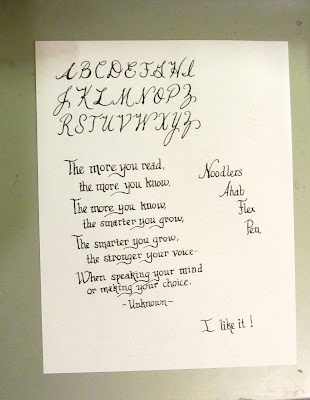 A B C D E F G H I
J K L M N O P Q
R S T U V W X Y Z
The more you read,
the more you know.
The more you know,
the smarter you grow,
The smarter you grow,
the stronger your voice-
When speaking your mind
or making your choice.
-Unknown-
Noodlers
Ahab
Flex
Pen
I like it!